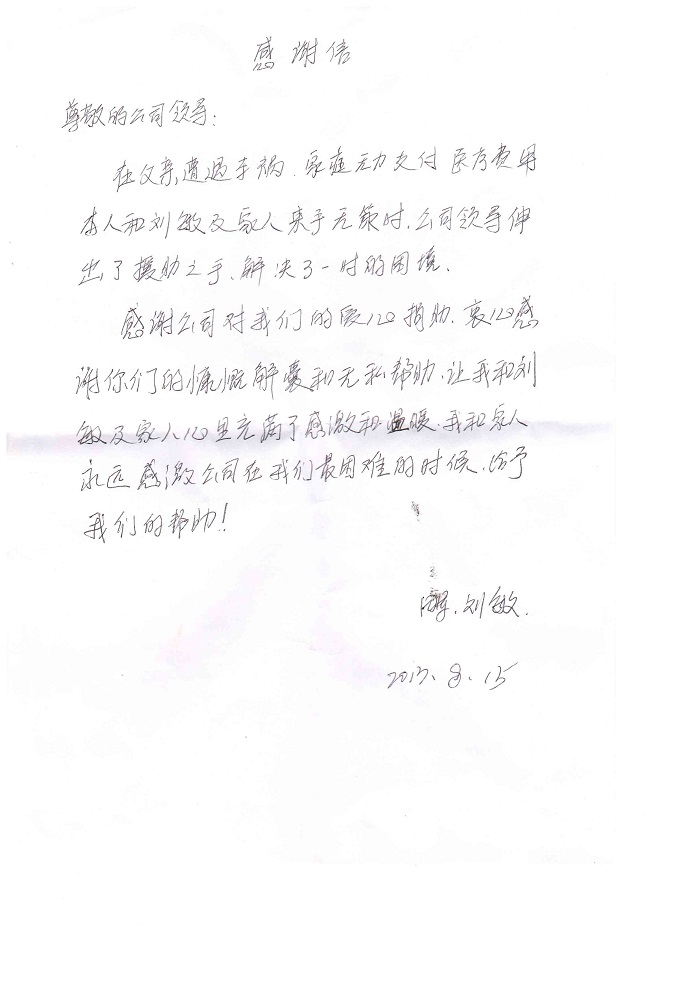 感谢信
尊敬的公司领导:
在父亲遭遇车祸、家庭无力支付医疗费用
本人和刘敏及家人束手无策时,公司领导伸
出了援助之手、解决了一时的困境、
感谢公司对我们的爱心捐助、衷心感
谢你们的慷慨解囊和无私帮助、让我和刘
敏及家人心里充满了感激和温暖、我和家人
永远感激公司在我们最困难的时候、给予
我们的帮助!
刘敏.
2013.8.15